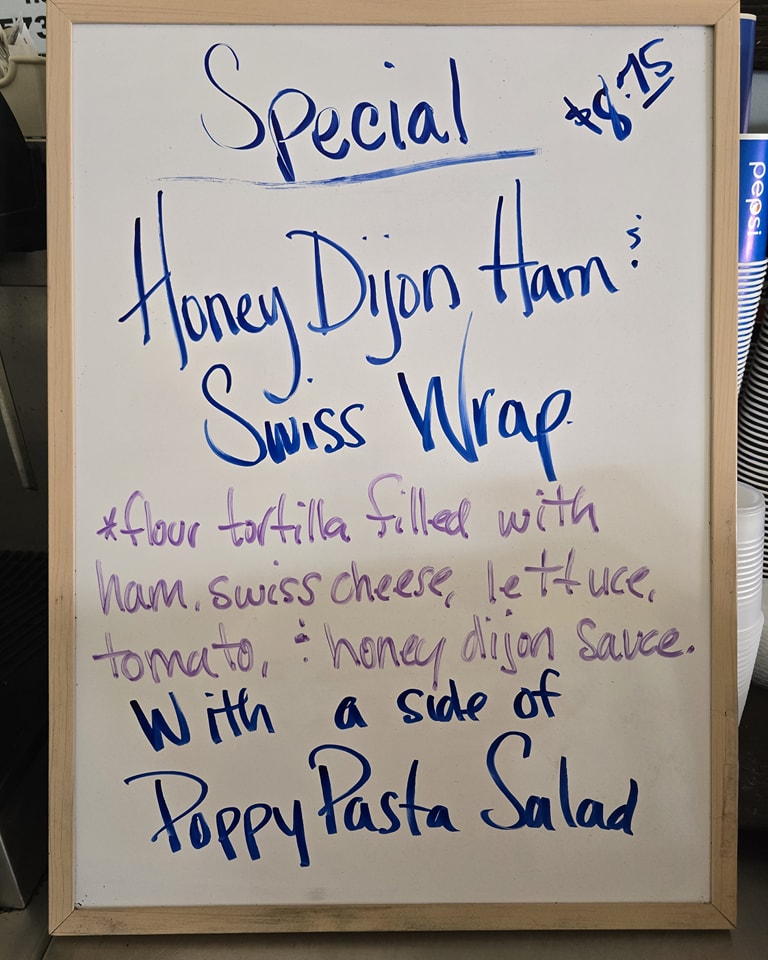 Special
$8.75
Honey Dijon Ham &
Swiss Wrap.
*flour tortilla filled with
ham, swiss cheese, lettuce,
tomato, & honey dijon sauce.
With a side of
Poppy Pasta Salad
pepsi